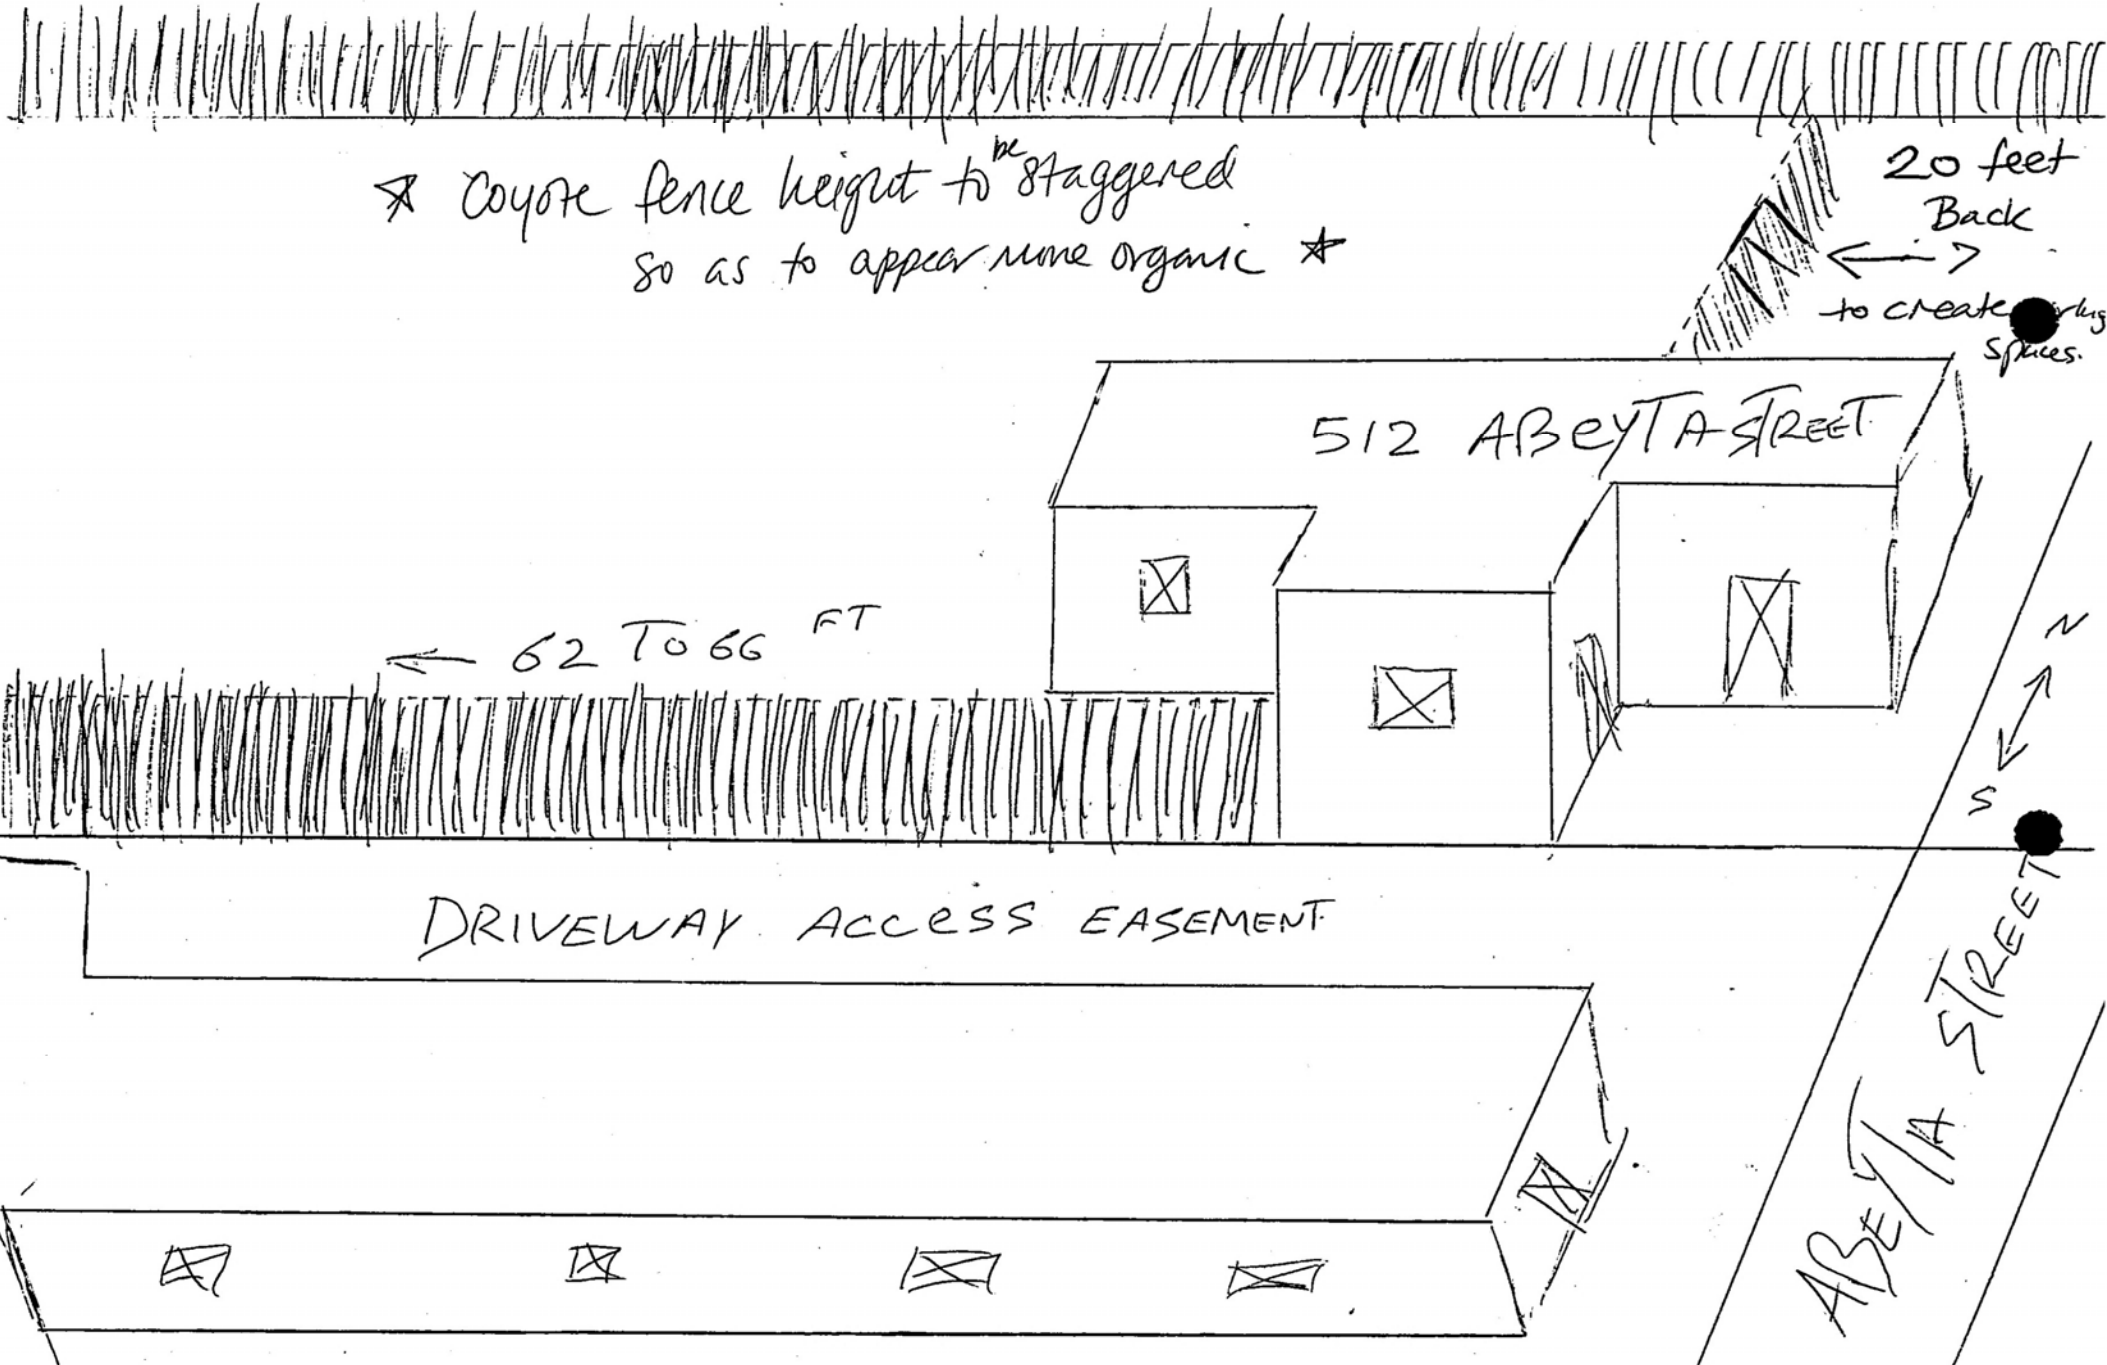 ☆ Coyote fence height to be staggered
so as to appear more organic ☆
20 feet
Back
to create
spaces.
512 ABEYTA STREET
← 62 TO 66 FT
N
S
DRIVEWAY ACCESS EASEMENT
ABEYTA STREET